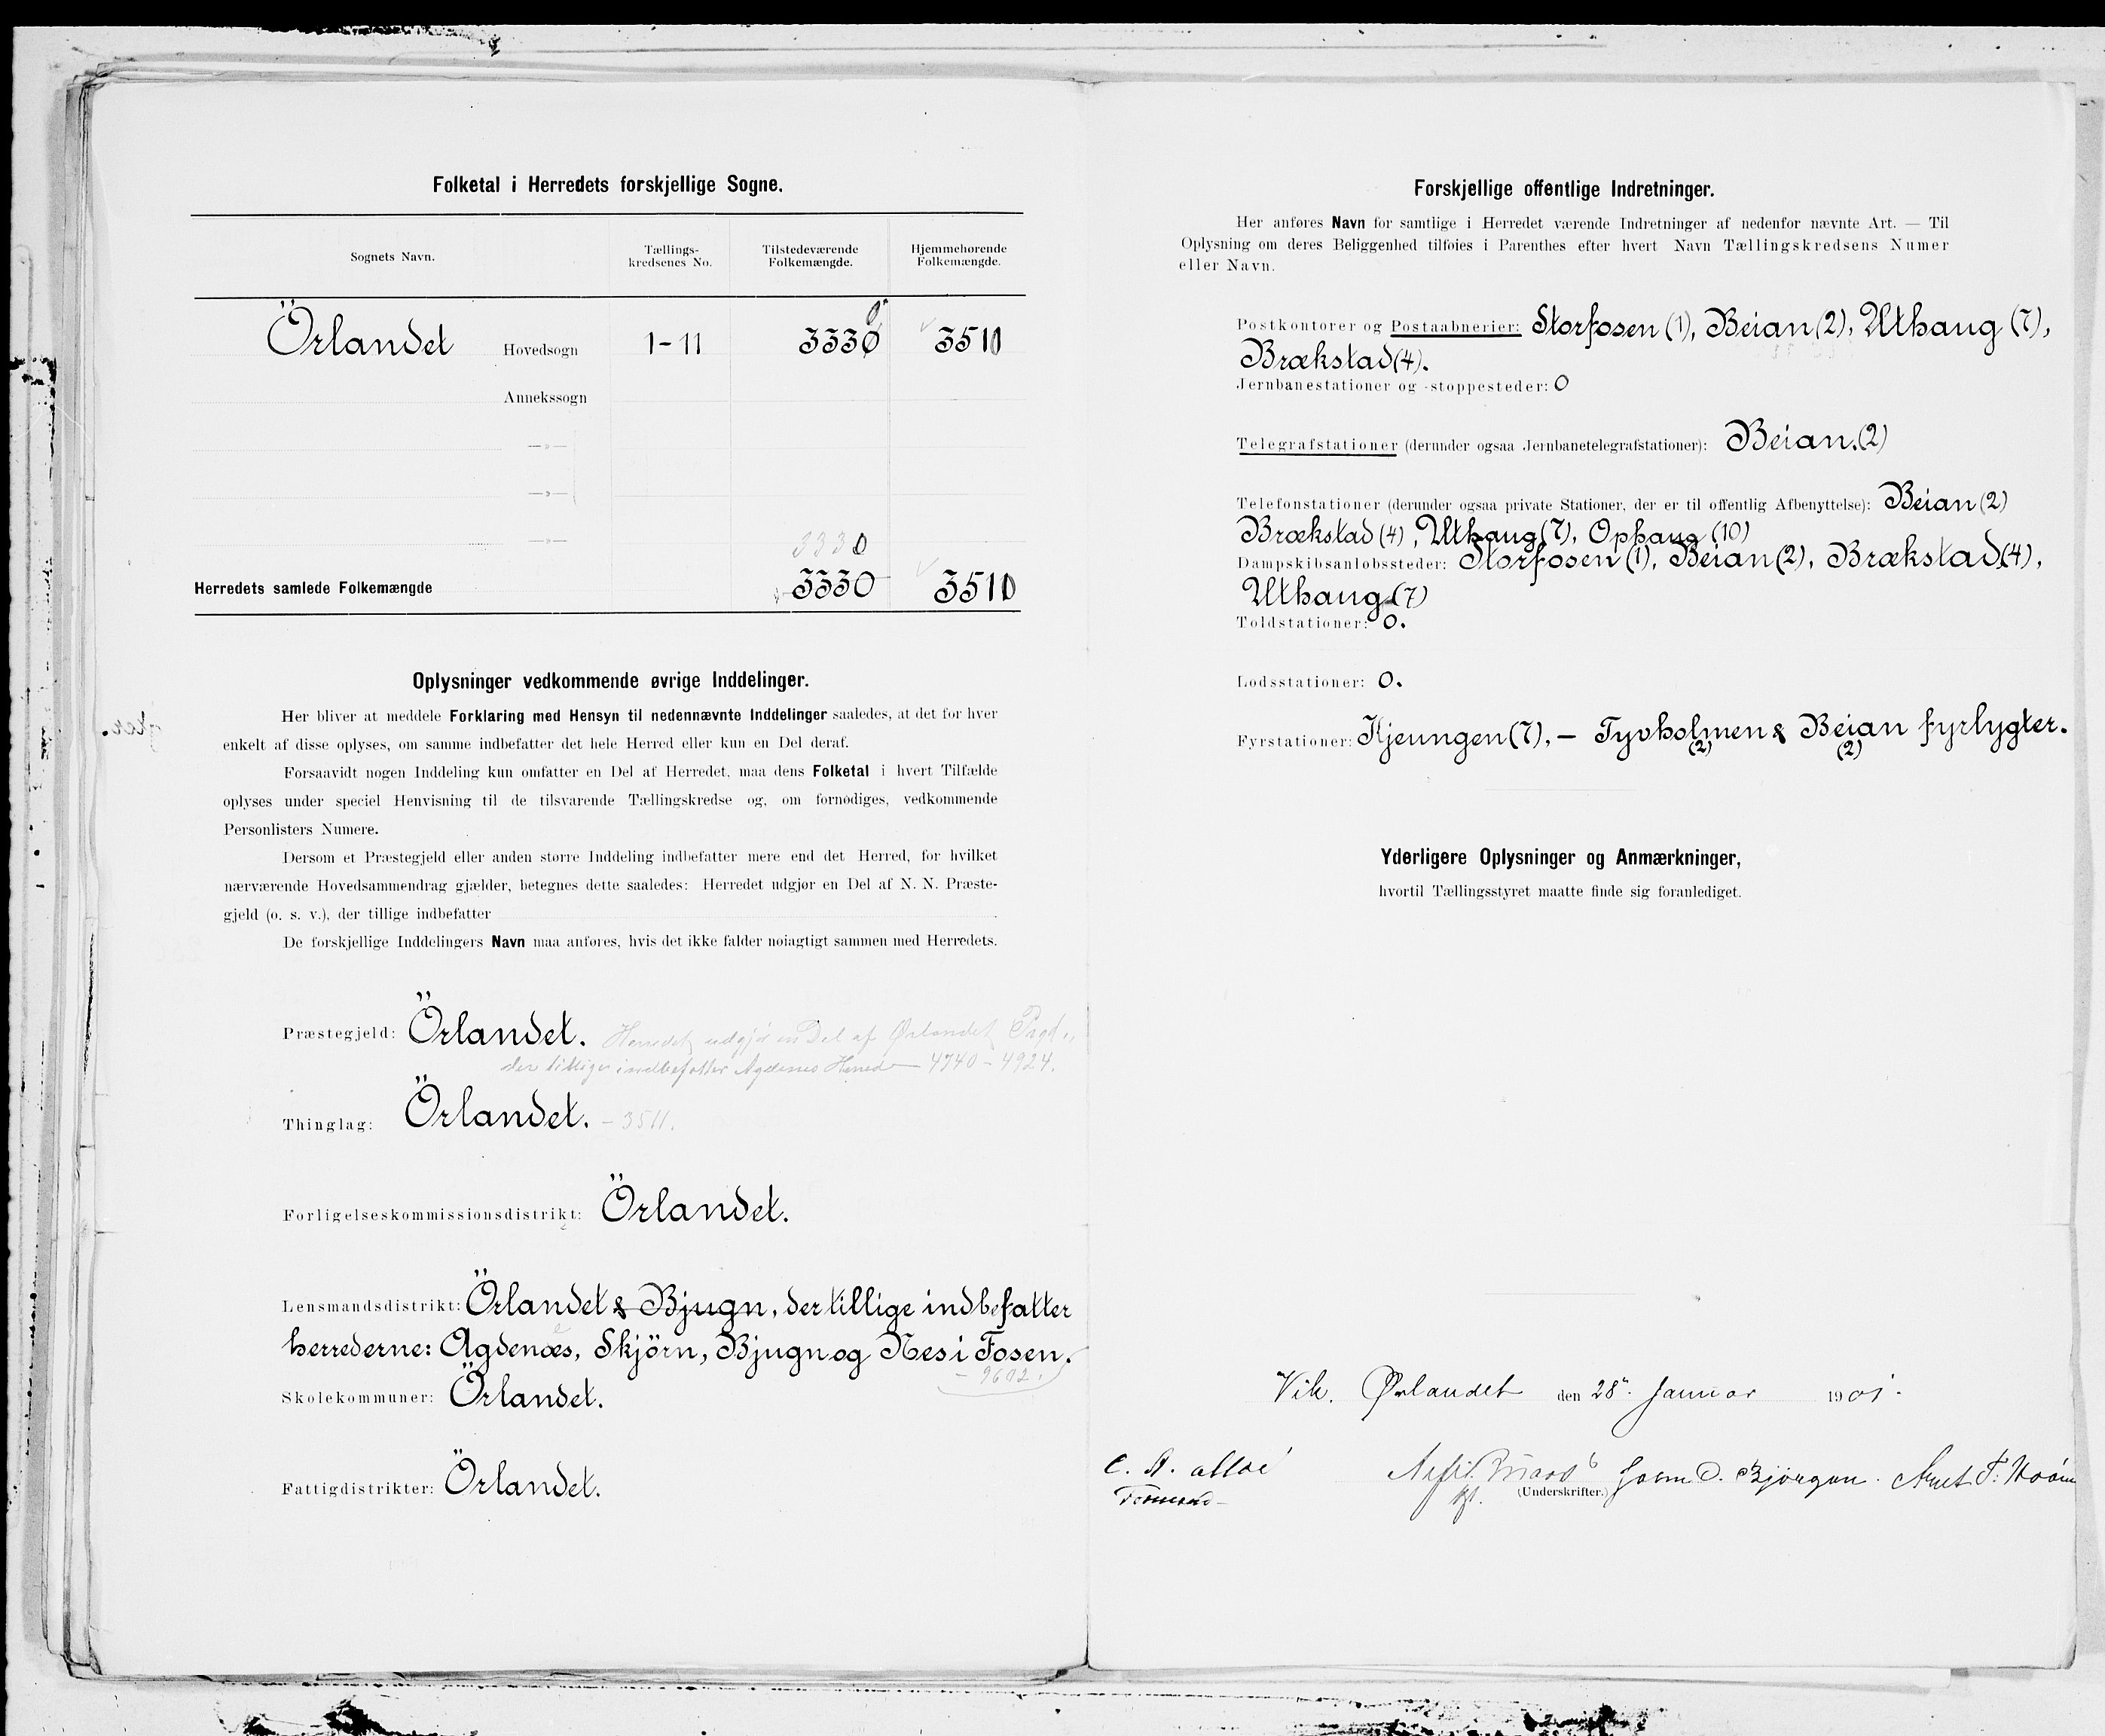 Folketal i Herredets forskjellige Sogne.
Sognets Navn.
Tællings-
kredsenes No.
Tilstedeværende
Folkemængde.
Hjemmehørende
Folkemængde.
Örlandet Hovedsogn 1-11 3330 3511
Annekssogn
—»—
—»—
—»— 3330
Herredets samlede Folkemængde 3330 3511
Oplysninger vedkommende øvrige Inddelinger.
Her bliver at meddele Forklaring med Hensyn til nedennævnte Inddelinger saaledes, at det for hver
enkelt af disse oplyses, om samme indbefatter det hele Herred eller kun en Del deraf.
Forsaavidt nogen Inddeling kun omfatter en Del af Herredet, maa dens Folketal i hvert Tilfælde
oplyses under speciel Henvisning til de tilsvarende Tællingskredse og, om fornødiges, vedkommende
Personlisters Numere.
Dersom et Præstegjeld eller anden større Inddeling indbefatter mere end det Herred, for hvilket
nærværende Hovedsammendrag gjælder, betegnes dette saaledes: Herredet udgjør en Del af N. N. Præste-
gjeld (o. s. v.), der tillige indbefatter
De forskjellige Inddelingers Navn maa anføres, hvis det ikke falder nøiagtigt sammen med Herredets.
Præstegjeld: Örlandet. Herredet udgjør en Del af Ørlandet Prgd.,
der tillige indbefatter Agdenes Herred – 4740 – 4924.
Thinglag: Örlandet. – 3511.
Forligelseskommissionsdistrikt: Örlandet.
Lensmandsdistrikt: Örlandet & Bjugn, der tillige indbefatter
herrederne: Agdenæs, Skjörn, Bjugn og Nes i Fosen.
– 9602.
Skolekommuner: Örlandet.
Fattigdistrikter: Örlandet.
Forskjellige offentlige Indretninger.
Her anføres Navn for samtlige i Herredet værende Indretninger af nedenfor nævnte Art. — Til
Oplysning om deres Beliggenhed tilføies i Parenthes efter hvert Navn Tællingskredsens Numer
eller Navn.
Postkontorer og Postaabnerier: Storfosen (1), Beian (2), Uthaug (7),
Brækstad (4).
Jernbanestationer og -stoppesteder: 0
Telegrafstationer (derunder ogsaa Jernbanetelegrafstationer): Beian. (2)
Telefonstationer (derunder ogsaa private Stationer, der er til offentlig Afbenyttelse): Beian (2)
Brækstad (4), Uthaug (7), Ophaug (10)
Dampskibsanløbssteder: Storfosen (1), Beian (2), Brækstad (4),
Uthaug (7)
Toldstationer: 0.
Lodsstationer: 0.
Fyrstationer: Kjeungen (7), – Tyvholmen & Beian fyrlygter.
(2) (2)
Yderligere Oplysninger og Anmærkninger,
hvortil Tællingsstyret maatte finde sig foranlediget.
Vik. Ørlandet den 28. Januar 1901.
(Underskrifter.)